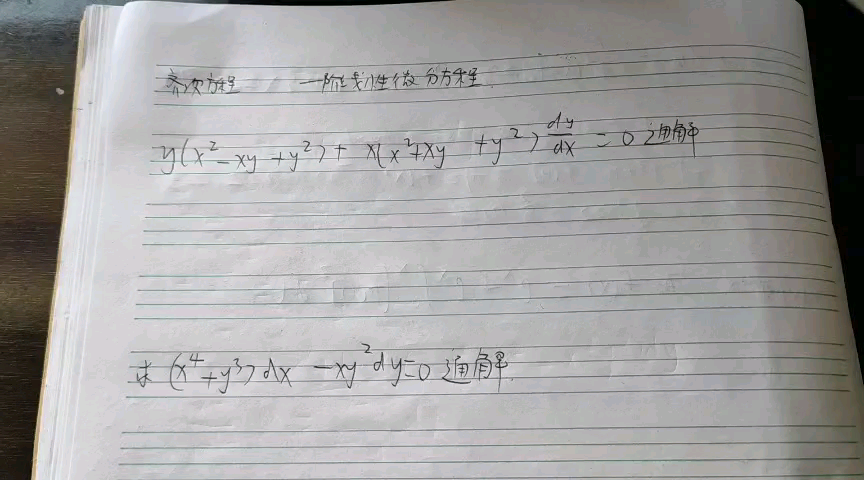 齐次方程 一阶线性微分方程
y(x²-xy+y²)+x(x²+xy+y²)dy/dx=0 通解
求(x⁴+y³)dx-xy²dy=0 通解.